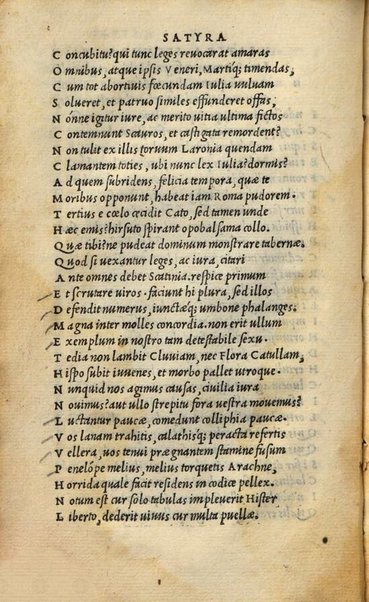 SATYRA
Concubitu? qui tunc leges revocarat amaras
Omnibus, atque ipsis Veneri, Martiq; timendas,
Cum tot abortivis fœcundam Iulia vuluam
Solueret, et patruo similes effunderet offas,
Nonne igitur iure, ac merito vitia ultima fictos
Contemnunt Scauros, et castigata remordent?
Non tulit ex illis torvum Laronia quendam
Clamantem toties, ubi nunc lex Iulia? dormis?
Ad quem subridens, felicia tempora, quæ te
Moribus opponunt, habeat iam Roma pudorem.
Tertius e cœlo cecidit Cato, sed tamen unde
Hæc emis? hirsuto spirant opobalsama collo.
Quæ tibi? ne pudeat dominum monstrare tabernæ.
Quod si vexantur leges, ac iura, citari
Ante omnes debet Scatinia. respice primum
Et scrutare viros. faciunt hi plura, sed illos
Defendit numerus, iunctæq; umbone phalanges.
Magna inter molles concordia. non erit ullum
Exemplum in nostro tam detestabile sexu.
Tedia non lambit Cluviam, nec Flora Catullam,
Hispo subit iuvenes, et morbo pallet utroque.
Nunquid nos agimus causas, civilia iura
Novimus? aut ullo strepitu fora vestra movemus?
Luctantur paucæ, comedunt colliphia paucæ.
Vos lanam trahitis, calathisq; peracta refertis
Vellera, uos tenui prægnantem stamine fusum
Penelope melius, melius torquetis Arachne,
Horrida quale facit residens in codice pellex.
Notum est cur solo tabulas impleverit Hister
Liberto, dederit uiuus cur multa puellæ.